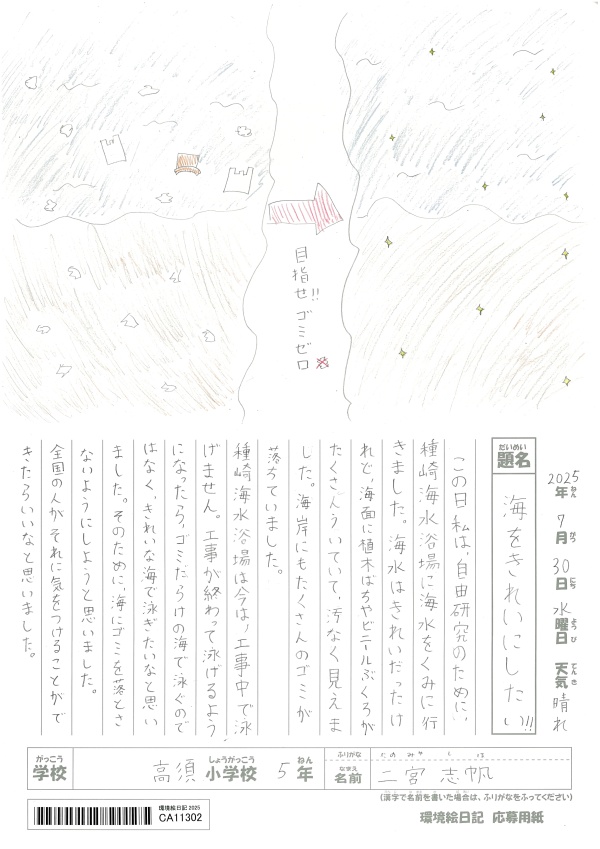 目指せ!!ゴミゼロ
2025年ねん7月がつ30日にち水曜日ようび天気てんき晴れ
題名だいめい
海をきれいにしたい!!
この日私は、自由研究のために、
種崎海水浴場に海水をくみに行
きました。海水はきれいだったけ
れど、海面に植木ばちやビニールぶくろが
たくさんういていて、汚なく見えま
した。海岸にもたくさんのゴミが
落ちていました。
種崎海水浴場は今は、工事中で泳
げません。工事が終わって泳げるよう
になったら、ゴミだらけの海で泳ぐので
はなく、きれいな海で泳ぎたいなと思い
ました。そのために、海にゴミを落とさ
ないようにしようと思いました。
全国の人がそれに気をつけることがで
きたらいいなと思いました。
がっこう しょうがっこう ねん ふりがな にのみや しほ
学校 高須 小学校 5 年 なまえ 名前 二宮 志帆
(漢字で名前を書いた場合は、ふりがなをふってください)
環境絵日記 2025
CA11302
環境絵日記 応募用紙